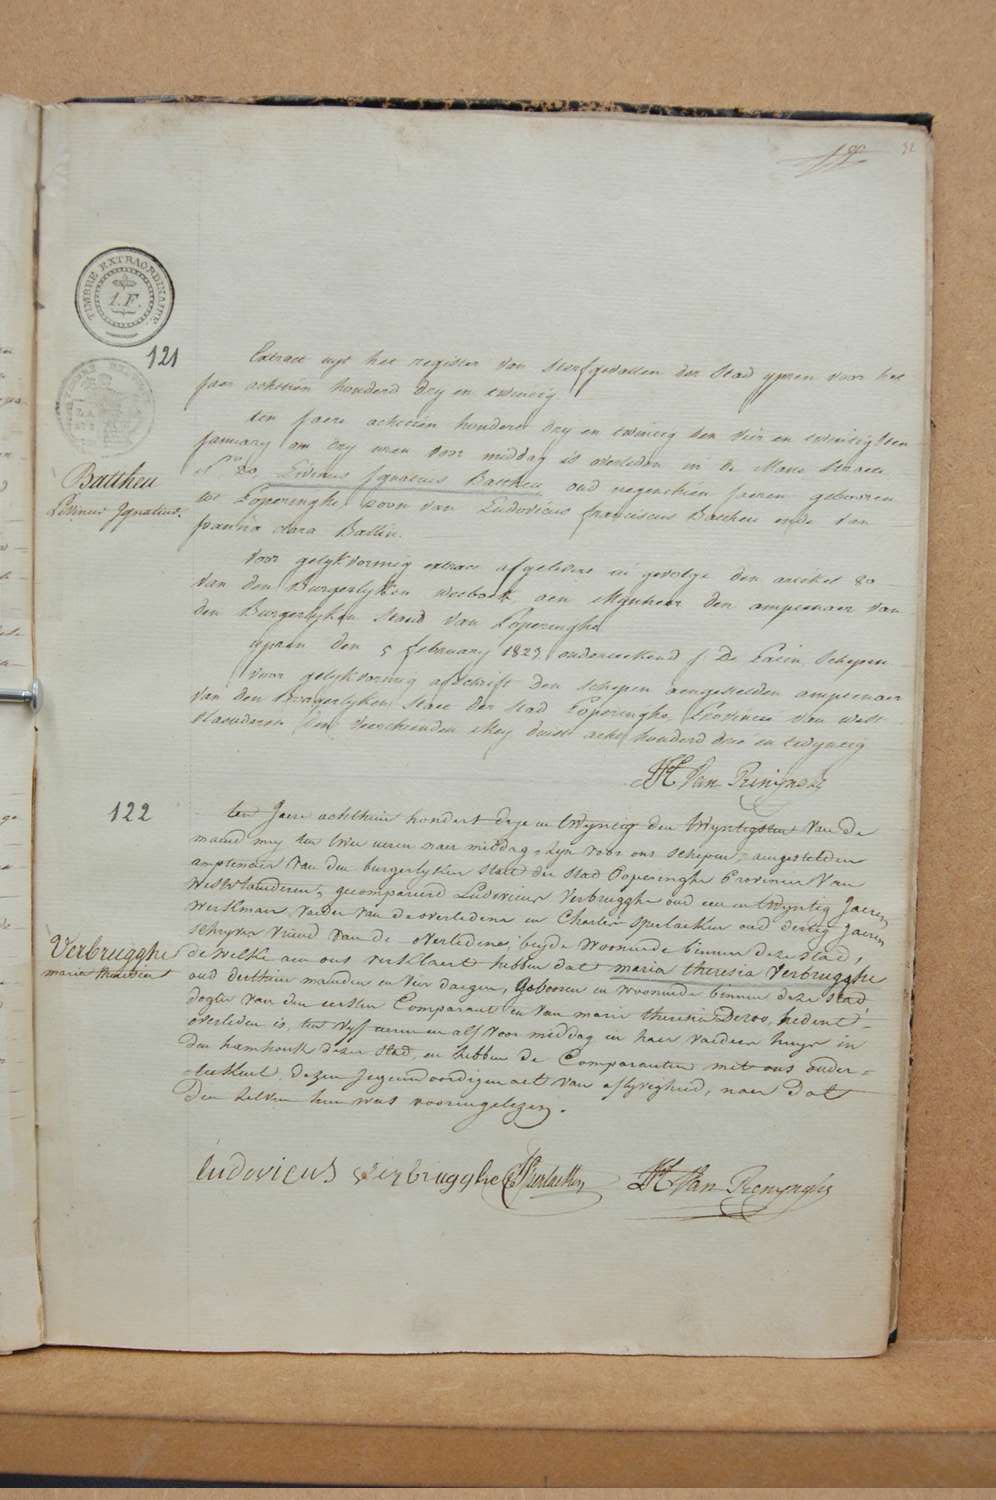 32
TIMBRE EXTRAORDINAIRE
1. F.
121
Extract uyt het register van sterfgevallen der Stad ypren voor het
jaer achttien honderd dry en twintig
ten jaere achttien honderd dry en twintig den vier en twintigsten
january om dry uren voor middag is overleden in de straete
N° 20 Livinus Ignatius Battheu oud negenthien jaeren gebooren
te Poperinghe, zoon van Ludovicus franciscus Battheu ende van
joanna clara Battin.
Battheu
Livinus Ignatius.
Voor gelykvormig extract afgelevert in gevolge den artikel 80
van den Burgerlyken wetboek aen Mynheer den amptenaer van
den Burgerlyken Stand van Poperinghe
ypren den 5 february 1823 onderteekend Schepen
voor gelykvormig afschrift den schepen aengestelden amptenaer
van den Burgerlyken Staet der stad Poperinghe, Provincie van west
vlaenderen den veerthienden Mey duist acht honderd drie en twyntig
Van Renynghe
122
ten Jaere achthien hondert dryje en twyntig den twyntigsten van de
maend mey ten twee uren naer middag, zyn voor ons schepen, aengestelden
amptenaer van den burgerlyken staet der stad Poperinghe Provincie van
westvlaenderen, gecompareerd Ludovicus Verbrugghe oud een en twyntig Jaeren
werkman, vaeder van de overledene en Charles Sperlaeken oud dertig Jaeren
schryver vriend van de overledene, beyde woonende binnen deze stad,
de welke aen ons verklaert hebben dat maria theresia Verbrugghe
Verbrugghe
maria theresia
oud derthien maenden en vier daegen, Gebooren en woonende binnen deze stad
dogter van den eersten Comparant en van marie theresia Deroo, hedent
overleden is, ten vyf uren en alf voor middag in haer vaeders huys in
den hamhoek dezer stad, en hebben de Comparanten met ons onder=
=teekent dezen jegenwoordigen act van aflyvigheid, naer dat
den zelven hun was voorengelezen.
Ludovicus Verbrugghe Sperlaeken Van Renynghe